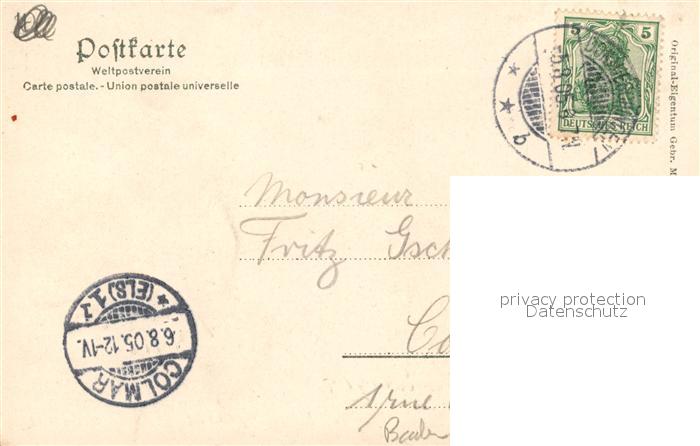 Postkarte
Weltpostverein
Carte postale. - Union postale universelle
5 5
DEUTSCHES REICH
Original-Eigentum Gebr. M
Monsieur
Fritz Gsch
Co
1/rue
privacy protection
Datenschutz
COLMAR
6.8.05.12-1V.
* (ELS) 1 1